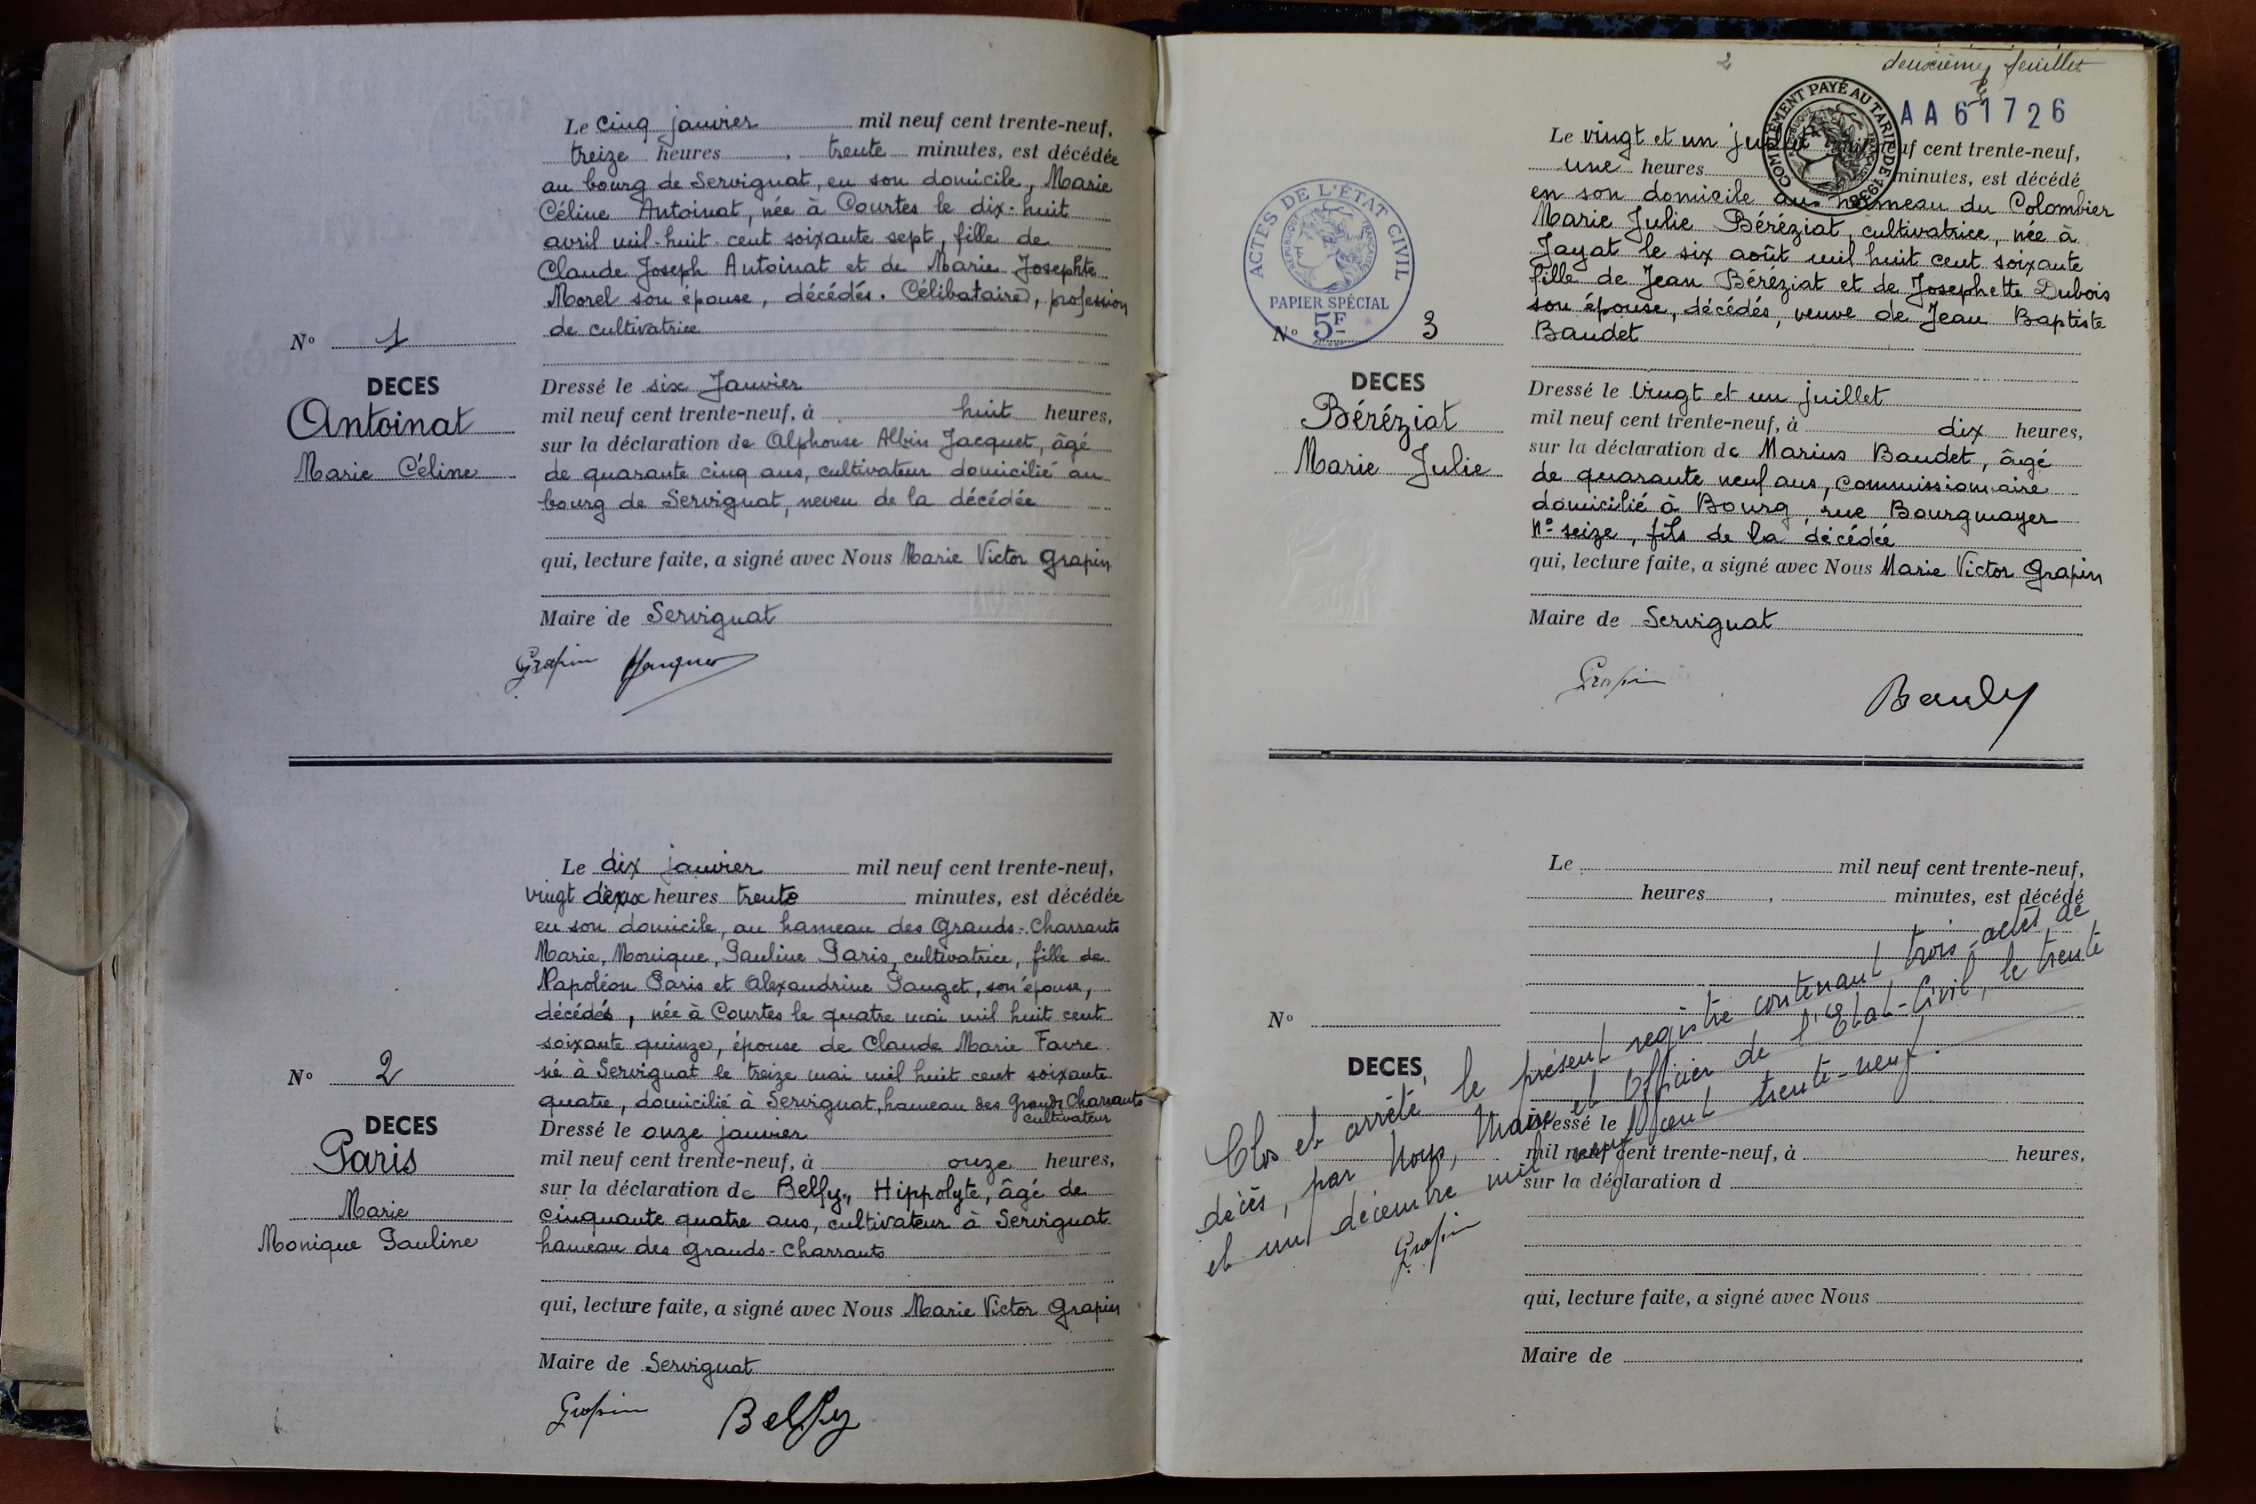 Le cinq janvier mil neuf cent trente-neuf,
treize heures, trente minutes, est décédée
au bourg de Servignat, en son domicile, Marie
Céline Antoinat, née à Courtes le dix-huit
avril mil-huit cent soixante sept, fille de
Claude Joseph Antoinat et de Marie Josephte
Morel son épouse, décédés. Célibataire, profession
de cultivatrice
N° 1
DECES
Antoinat
Marie Céline
Dressé le six Janvier
mil neuf cent trente-neuf, à huit heures,
sur la déclaration de Alphonse Albin Jacquet, âgé
de quarante cinq ans, cultivateur domicilié au
bourg de Servignat, neveu de la décédée
qui, lecture faite, a signé avec Nous Marie Victor Grapin
Maire de Servignat
Grapin Jacquet
Le dix janvier mil neuf cent trente-neuf,
vingt deux heures trente minutes, est décédée
en son domicile, au hameau des Grands-Charrants
Marie, Monique, Pauline Paris, cultivatrice, fille de
Napoléon Paris et Alexandrine Pauget, son épouse,
décédés, née à Courtes le quatre mai mil huit cent
soixante quinze, épouse de Claude Marie Favre
né à Servignat le treize mai mil huit cent soixante
quatre, domicilié à Servignat, hameau des Grands Charrants
cultivateur
N° 2
DECES
Paris
Marie
Monique Pauline
Dressé le onze janvier
mil neuf cent trente-neuf, à onze heures,
sur la déclaration de Belfy, Hippolyte, âgé de
cinquante quatre ans, cultivateur à Servignat
hameau des Grands-Charrants
qui, lecture faite, a signé avec Nous Marie Victor Grapin
Maire de Servignat
Grapin Belfy
2 deuxième feuillet
AA 61726
COMPLÉMENT PAYÉ AU TARIF DE
ACTES DE L'ÉTAT CIVIL
RÉPUBLIQUE FRANÇAISE
PAPIER SPÉCIAL
5F
Le vingt et un juillet mil neuf cent trente-neuf,
une heures minutes, est décédé
en son domicile au hameau du Colombier
Marie Julie Béréziat, cultivatrice, née à
Jayat le six août mil huit cent soixante
fille de Jean Béréziat et de Josephette Dubois
son épouse, décédés, veuve de Jean Baptiste
Baudet
N° 3
DECES
Béréziat
Marie Julie
Dressé le vingt et un juillet
mil neuf cent trente-neuf, à dix heures,
sur la déclaration de Marius Baudet, âgé
de quarante neuf ans, commissionnaire
domicilié à Bourg, rue Bourgmayer
N° seize, fils de la décédée
qui, lecture faite, a signé avec Nous Marie Victor Grapin
Maire de Servignat
Grapin
Le mil neuf cent trente-neuf,
heures, minutes, est décédé
N°
DECES
Dressé le
mil neuf cent trente-neuf, à heures,
sur la déclaration d
qui, lecture faite, a signé avec Nous
Maire de
Clos et arrêté le présent registre contenant trois actes de
décès, par Nous, Maire et Officier de l'Etat-Civil, le trente
et un décembre mil neuf cent trente-neuf.
Grapin